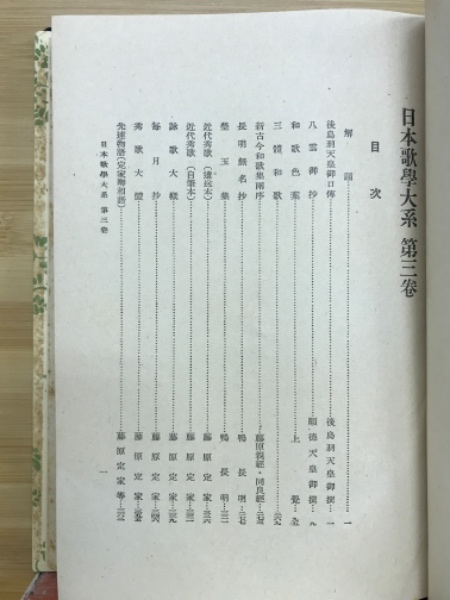 日本歌學大系 第三卷
目次
解題……一
後鳥羽天皇御口傳……後鳥羽天皇御撰…一
八雲御抄……順德天皇御撰…九
和歌色葉……上覺…九
三體和歌
新古今和歌集兩序……藤原親經・同良經
長明無名抄……鴨長明
瑩玉集……鴨長明
近代秀歌(遣送本)……藤原定家
近代秀歌(自筆本)……藤原定家
詠歌大概……藤原定家
每月抄……藤原定家
秀歌大體……藤原定家
先達物語(定家卿相語)……藤原定家等
日本歌學大系 第三卷
一